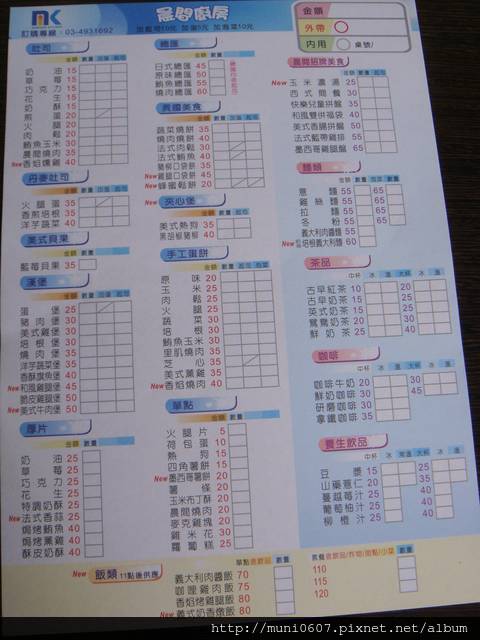 晨間廚房
訂購專線：03-4931692
加起司10元 加蛋5元 加蔬菜10元
金額
外帶
內用 桌號/
吐司
金額 數量 加蛋 起司
奶油 15
草莓 15
巧克力 15
花生 15
奶酥 15
煎蛋 20
火腿 20
肉鬆 20
鮪魚玉米 30
晨間燒肉 35
New 香焰燻雞 40
丹麥吐司
金額 數量 加蛋 起司
火腿蛋 35
香煎培根 35
洋芋蔬菜 40
美式貝果
金額 數量
藍莓貝果 35
漢堡
金額 數量 加蛋 起司
蛋堡 25
豬肉堡 30
美式雞堡 30
培根堡 30
燒肉堡 35
洋芋蔬菜堡 35
香酥旗魚堡 40
New 和風雞腿堡 45
脆皮雞腿堡 50
New 美式牛肉堡 50
厚片
金額 數量
奶油 25
草莓 25
巧克力 25
花生 25
特調奶酥 25
New 法式香蒜 25
焗烤鮪魚 40
焗烤燻雞 40
酥皮奶酥 40
總匯
金額 數量
日式總匯 45
原味總匯 50
鮪魚總匯 55
燒肉總匯 60
異國美食
金額 數量 加蛋 起司
蔬菜燒餅 35
燒肉燒餅 40
法式肉鬆 30
法式鮪魚 40
豬柳口袋餅 35
New 雞腿口袋餅 45
New 蜂蜜鬆餅 20
New 夾心堡
金額 數量
美式熱狗 35
黑胡椒豬柳 40
手工蛋餅
金額 數量 起司
原味 20
玉米 25
肉鬆 25
火腿 25
蔬菜 30
培根 30
鮪魚玉米 30
里肌燒肉 35
芝心 35
美式薰雞 35
New 香焰燒肉 40
單點
金額 數量
火腿片 5
荷包蛋 10
熱狗 15
四角薯餅 15
New 墨西哥薯餅 20
薯條 20
玉米布丁酥 20
晨間燒肉 20
麥克雞塊 20
香芋花 30
蘿蔔糕 25
晨間招牌美食
金額 數量 起司
New 玉米濃湯 25
西式簡餐 30
快樂兒童拼盤 35
和風雙拼福袋 40
美式香腸拼盤 50
法式藍帶雞排 55
墨西哥雞拼盤 60
麵類
意麵 55 65
雞絲麵 55 65
拉麵 55 65
冬粉 55 65
義大利肉醬麵 55
New 培根義大利麵 60
茶品
中杯 冰 溫 大杯 冰 溫
古早紅茶 10 20
古早奶茶 15 25
英式奶茶 15 25
鴛鴦奶茶 20 30
鮮奶茶 25 40
咖啡
中杯 冰 溫 大杯 冰 溫
咖啡牛奶 20 30
鮮奶咖啡 30 45
研磨咖啡 30
拿鐵咖啡 35
養生飲品
中杯 冰 常溫 大杯 冰 溫
豆漿 15 25
山藥薏仁 20 35
蔓越莓汁 25 40
葡萄柚汁 25 40
柳橙汁 25 40
New 飯類 11點後供應
單點 數量
義大利肉醬飯 70
咖哩雞肉飯 75
香焰烤雞腿飯 80
New 義式奶香燉飯 80
數量
110
115
120
http://muni0607.pixnet.net/album